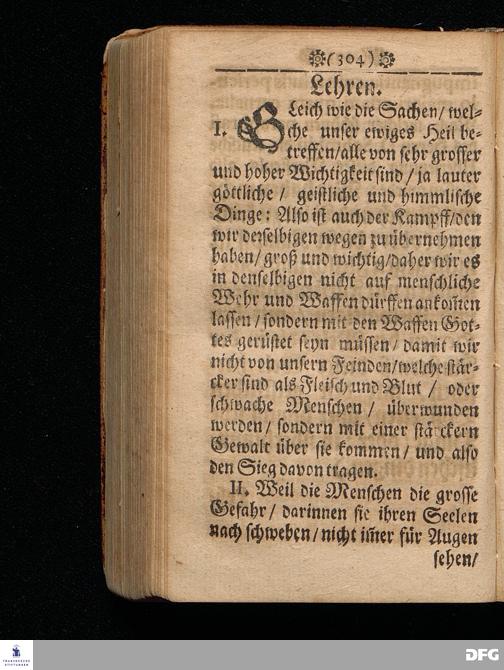 ❁(304)❁
Lehren.
I. GLeich wie die Sachen/ wel-
che unser ewiges Heil be-
treffen/alle von sehr grosser
und hoher Wichtigkeit sind / ja lauter
göttliche / geistliche und himmlische
Dinge: Also ist auch der Kampff/den
wir derselbigen wegen zu übernehmen
haben/ groß und wichtig/daher wir es
in denselbigen nicht auf menschliche
Wehr und Waffen dürffen ankom̃en
lassen / sondern mit den Waffen Got-
tes gerüstet seyn müssen / damit wir
nicht von unsern Feinden/welche stär-
cker sind als Fleisch und Blut / oder
schwache Menschen / überwunden
werden / sondern mit einer stärckern
Gewalt über sie kommen / und also
den Sieg davon tragen.
II. Weil die Menschen die grosse
Gefahr / darinnen sie ihren Seelen
nach schweben / nicht im̃er für Augen
sehen/
FRANCKESCHE
STIFTUNGEN
DFG